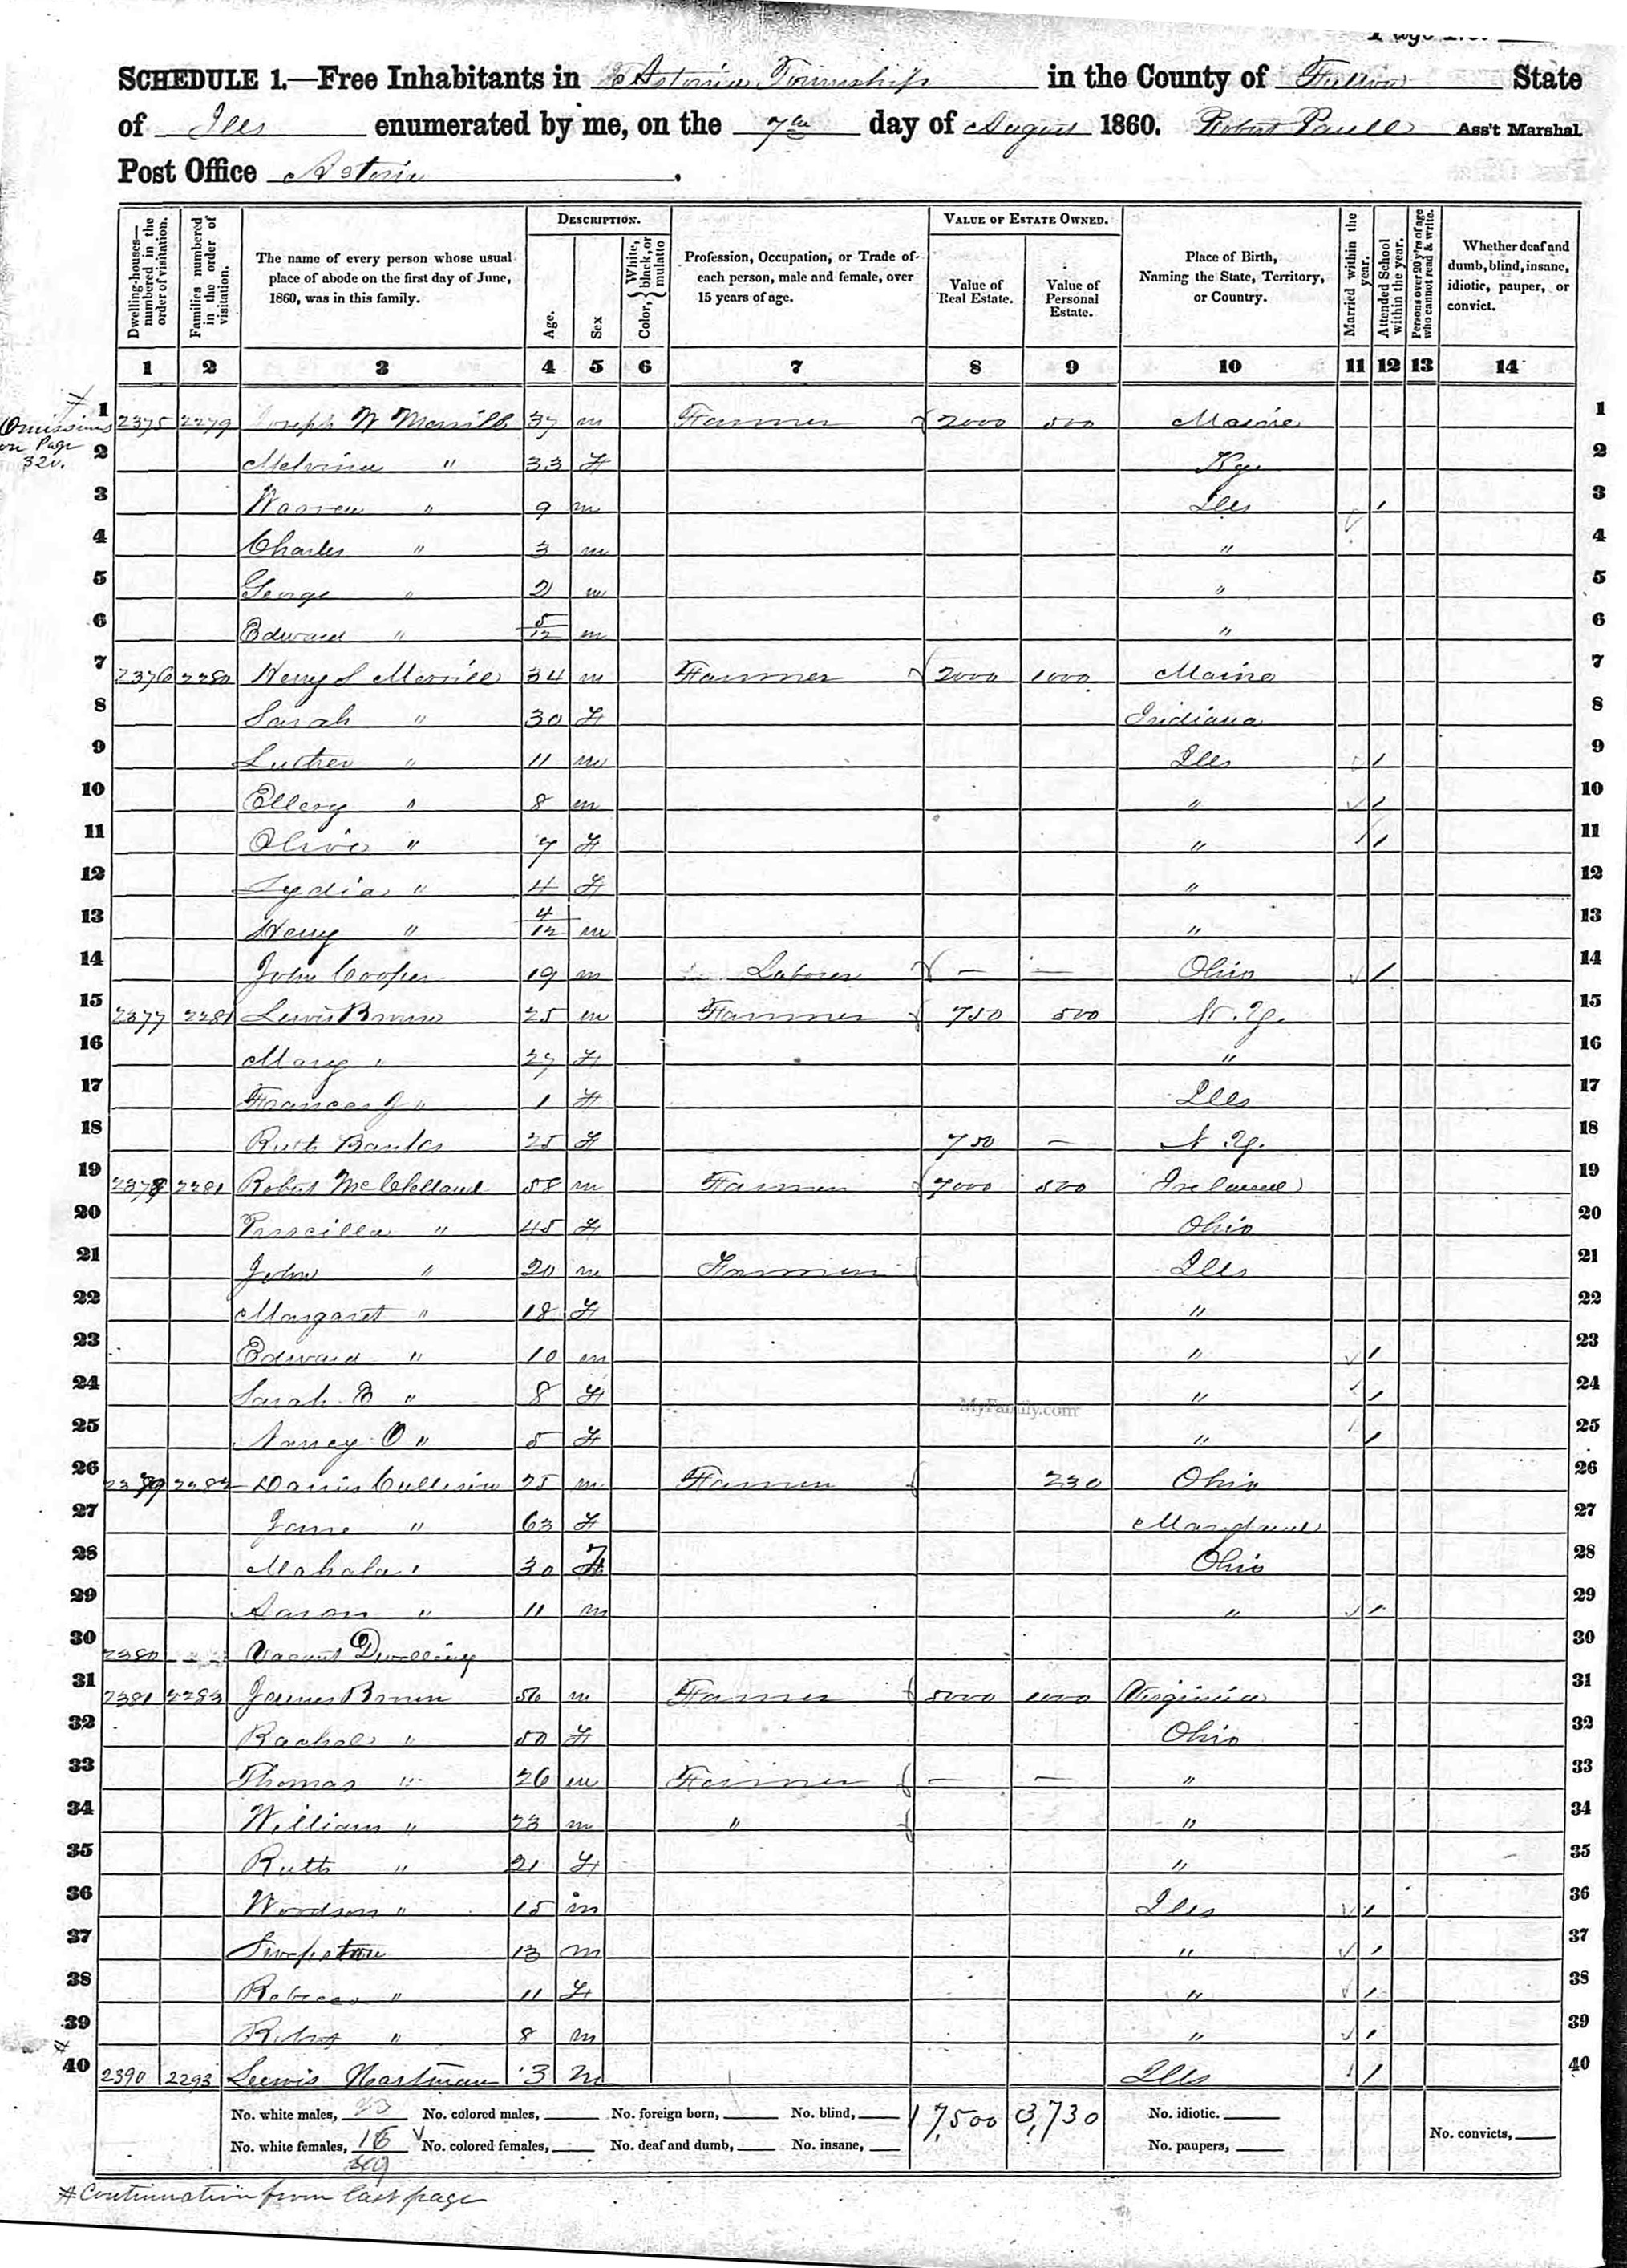 SCHEDULE 1.—Free Inhabitants in Astoria Township in the County of Fulton State
of Ills enumerated by me, on the 7th day of August 1860. Robert Paull Ass't Marshal.
Post Office Astoria
Dwelling-houses—numbered in the order of visitation.
Families numbered in the order of visitation.
The name of every person whose usual place of abode on the first day of June, 1860, was in this family.
DESCRIPTION.
Age.
Sex
Color, White, black, or mulatto
Profession, Occupation, or Trade of each person, male and female, over 15 years of age.
VALUE OF ESTATE OWNED.
Value of Real Estate.
Value of Personal Estate.
Place of Birth, Naming the State, Territory, or Country.
Married within the year.
Attended School within the year.
Persons over 20 y'rs of age who cannot read & write.
Whether deaf and dumb, blind, insane, idiotic, pauper, or convict.
1 2 3 4 5 6 7 8 9 10 11 12 13 14
Omissions on Page 320.
1 2375 2279 Joseph W Merrill 37 m Farmer 2000 500 Maine 1
2 Melvina " 33 F Ky. 2
3 Warren " 9 m Ills / 3
4 Charles " 3 m " 4
5 George " 2 m " 5
6 Edward " 5/12 m " 6
7 2376 2280 Henry S Merrill 34 m Farmer 2000 1000 Maine 7
8 Sarah " 30 F Indiana 8
9 Luther " 11 m Ills / 9
10 Ellery " 8 m " / 10
11 Olive " 7 F " / 11
12 Lydia " 4 F " 12
13 Henry " 4/12 m " 13
14 John Cooper 19 m Laborer — — Ohio / 14
15 2377 2281 Lewis Brown 25 m Farmer 750 500 N.Y. 15
16 Mary " 27 F " 16
17 Frances J " 1 F Ills 17
18 Ruth Banks 25 F 750 — N.Y. 18
19 2378 2281 Robert McClelland 58 m Farmer 7000 500 Ireland 19
20 Priscilla " 45 F Ohio 20
21 John " 20 m Farmer Ills 21
22 Margaret " 18 F " 22
23 Edward " 10 m " / 23
24 Sarah E " 8 F " / 24
25 Nancy O " 5 F " / 25
MyFamily.com
26 2379 2282 Cullison 25 m Farmer 230 Ohio 26
27 Jane " 63 F Maryland 27
28 Mahala " 30 F Ohio 28
29 Aaron " 11 m " / 29
30 2380 Vacant Dwelling 30
31 2381 2283 James Brown 56 m Farmer 5000 1000 Virginia 31
32 Rachel " 50 F Ohio 32
33 Thomas " 26 m Farmer — — " 33
34 William " 23 m " " 34
35 Ruth " 21 F " 35
36 Woodson " 15 m Ills / 36
37 13 m " / 37
38 Rebecca " 11 F " / 38
39 Robert " 8 m " / 39
40 2390 2293 Lewis Hartman 3 m Ills / 40
No. white males, 23 No. colored males, No. foreign born, No. blind, 17,500 3,730 No. idiotic.
No. white females, 16 No. colored females, No. deaf and dumb, No. insane, No. paupers, No. convicts,
39
# Continuation from last page